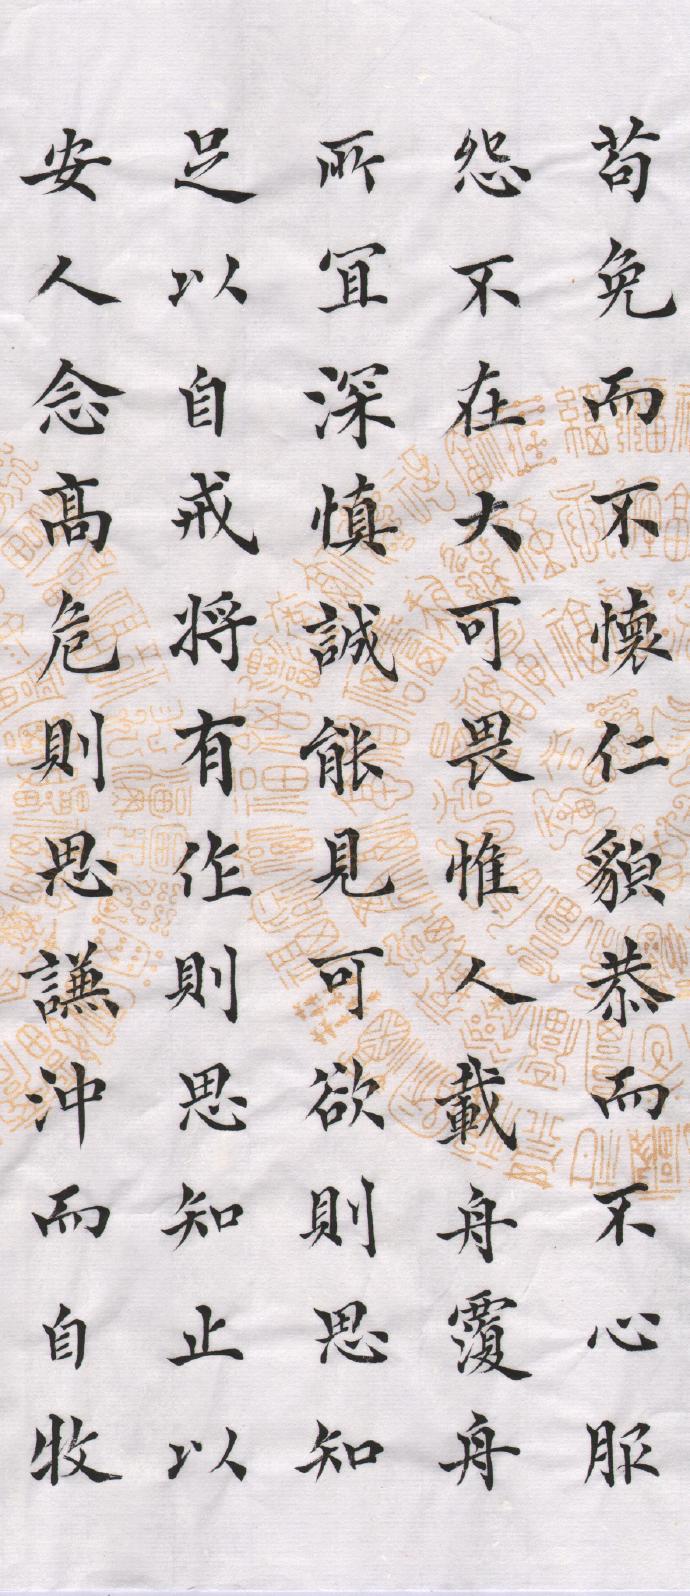 苟免而不懷仁貌恭而不心服
怨不在大可畏惟人載舟覆舟
所宜深慎誠能見可欲則思知
足以自戒将有作則思知止以
安人念高危則思謙沖而自牧